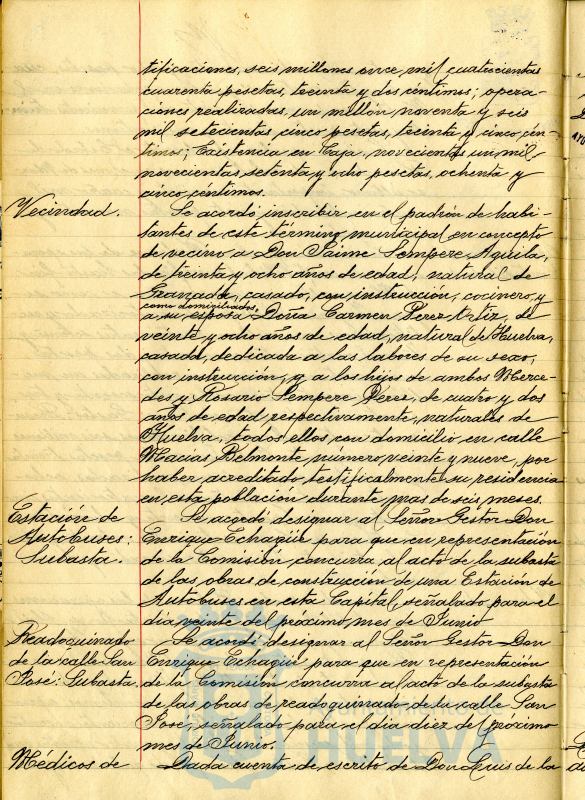 tificaciones, seis millones once mil cuatrocientas
cuarenta pesetas, treinta y dos céntimos; opera-
ciones realizadas, un millón noventa y seis
mil setecientas cinco pesetas, treinta y cinco cén-
timos; Existencia en Caja, novecientas un mil
novecientas setenta y ocho pesetas, ochenta y
cinco céntimos.
Vecindad.
Se acordó inscribir en el padrón de habi-
tantes de este término municipal en concepto
de vecino a Don Jaime Sempere Aguila,
de treinta y ocho años de edad, natural de
Granada, casado, con instrucción, cocinero, y
como domiciliados
a su esposa Doña Carmen Pérez Ortiz, de
veinte y ocho años de edad, natural de Huelva,
casada, dedicada a las labores de su sexo,
con instrucción, y a los hijos de ambos Merce-
des y Rosario Sempere Pérez, de cuatro y dos
años de edad respectivamente, naturales de
Huelva, todos ellos con domicilio en calle
Macías Belmonte número veinte y nueve, por
haber acreditado testificalmente su residencia
en esta población durante mas de seis meses.
Estación de
Autobuses:
Subasta.
Se acordó designar al Señor Gestor Don
Enrique Echagüe para que en representación
de la Comisión concurra al acto de la subasta
de las obras de construcción de una Estación de
Autobuses en esta Capital, señalado para el
dia veinte del próximo mes de Junio
Readoquinado
de la calle San
José: Subasta.
Se acordó designar al Señor Gestor Don
Enrique Echagüe para que en representación
de la Comisión concurra al acto de la subasta
de las obras de readoquinado de la calle San
José, señalado para el dia diez del próximo
mes de Junio.
Médicos de
Dada cuenta de escrito de Don Luis de la
HUELVA